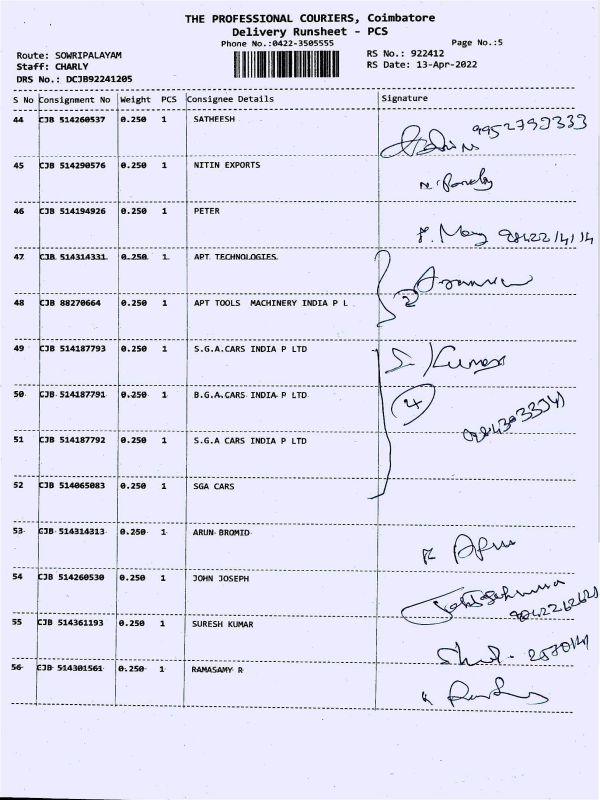 THE PROFESSIONAL COURIERS, Coimbatore
Delivery Runsheet - PCS
Phone No.:0422-3505555 Page No.:5
Route: SOWRIPALAYAM RS No.: 922412
Staff: CHARLY RS Date: 13-Apr-2022
DRS No.: DCJB92241205
S No Consignment No Weight PCS Consignee Details Signature
44 CJB 514260537 0.250 1 SATHEESH
45 CJB 514290576 0.250 1 NITIN EXPORTS
46 CJB 514194926 0.250 1 PETER
47 CJB 514314331 0.250 1 APT TECHNOLOGIES
48 CJB 88270664 0.250 1 APT TOOLS MACHINERY INDIA P L
2
49 CJB 514187793 0.250 1 S.G.A.CARS INDIA P LTD
50 CJB 514187791 0.250 1 B.G.A.CARS INDIA P LTD
4
51 CJB 514187792 0.250 1 S.G.A CARS INDIA P LTD
52 CJB 514065083 0.250 1 SGA CARS
53 CJB 514314313 0.250 1 ARUN BROMID
54 CJB 514260530 0.250 1 JOHN JOSEPH
55 CJB 514361193 0.250 1 SURESH KUMAR
56 CJB 514301561 0.250 1 RAMASAMY R